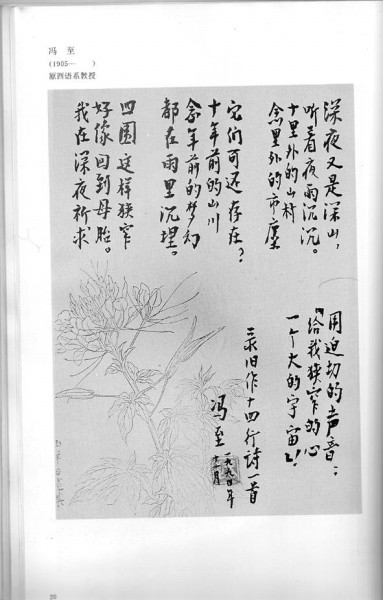 冯 至
(1905— )
原西语系教授
深夜又是深山，
听着夜雨沉沉。
十里外的山村
念里外的市廛
它们可还存在？
十年前的山川
念年前的梦幻
都在雨里沉埋。
四围这样狭窄
好像回到母胎。
我在深夜祈求
用迫切的声音：
“给我狭窄的心
一个大的宇宙！”
录旧作十四行诗一首
冯至
一九九〇年